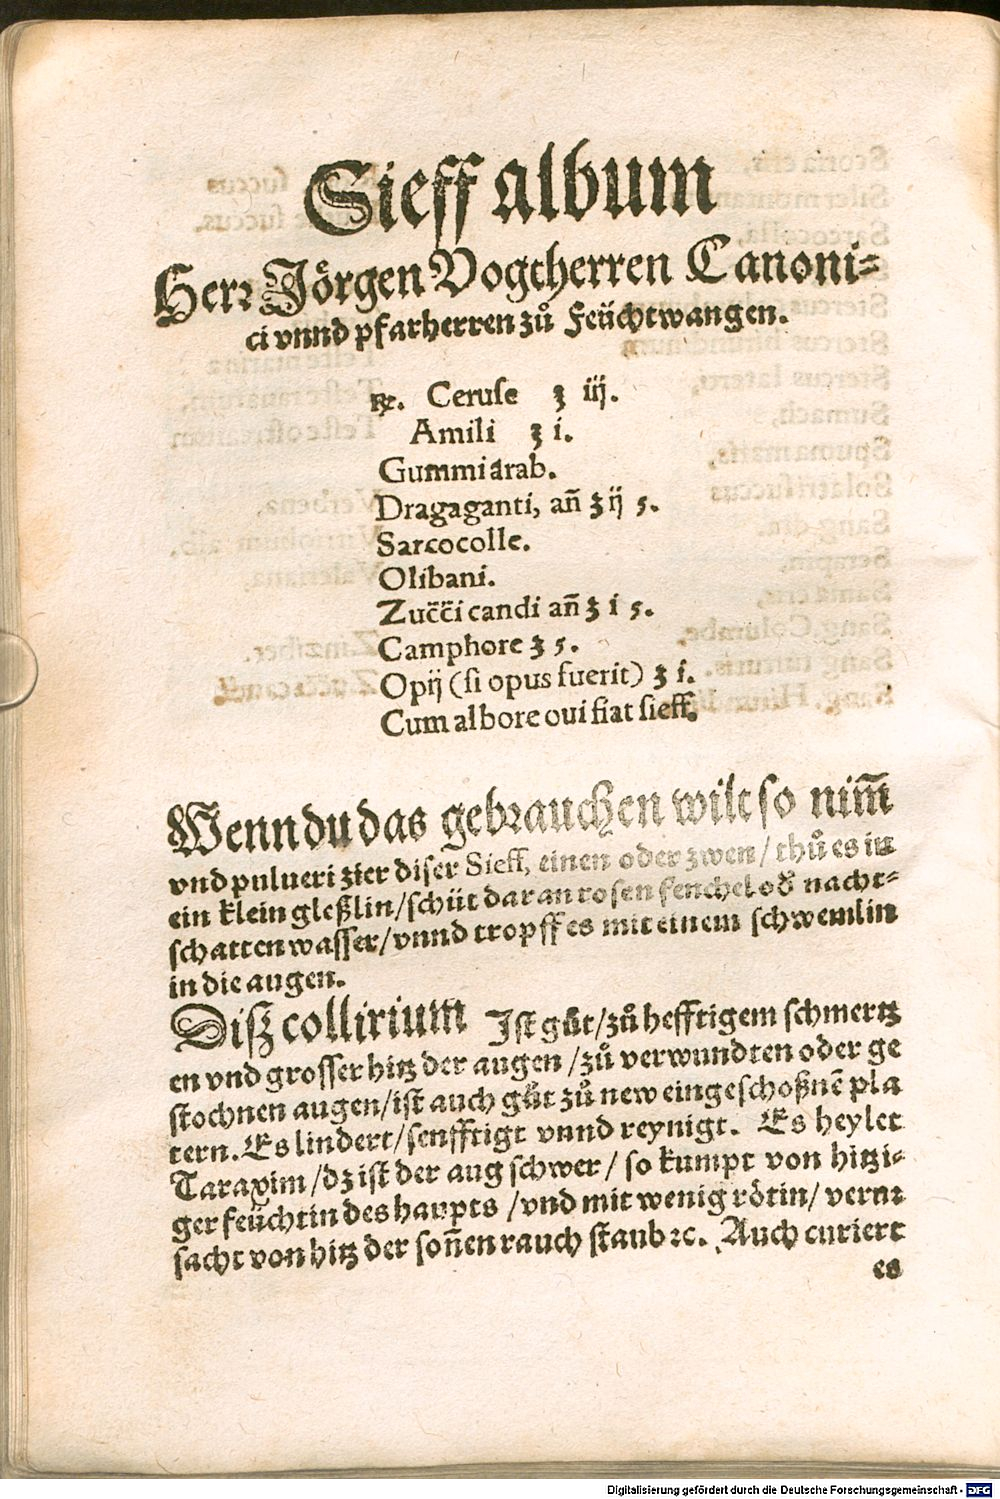 Sieff album
Herr Jörgen Vogtherren Canoni⸗
ci vnnd pfarherren zů Feüchtwangen.
℞. Ceruse ʒ iij.
Amili ʒ i.
Gummi arab.
Dragaganti, añ ʒ ij 5.
Sarcocolle.
Olibani.
Zuc̄c̄i candi añ ʒ i 5.
Camphore ʒ 5.
Opij (si opus fuerit) ʒ i.
Cum albore oui fiat sieff.
Wenn du das gebrauchen wilt so nim̄
vnd pulueri zier diser Sieff, einen oder zwen / thů es in
ein klein gleßlin/schüt daran rosen fenchel od̕ nacht⸗
schatten wasser/vnnd tropff es mit einem schwemlin
in die augen.
Disz collirium Ist gůt/zů hefftigem schmertz
en vnd grosser hitz der augen /zů verwundten oder ge
stochnen augen/ist auch gůt zů new eingeschoßnē pla
tern. Es lindert/senfftigt vnnd reynigt. Es heylet
Taraxim /dz ist der aug schwer / so kumpt von hitzi⸗
ger feüchtin des haupts /vnd mit wenig rötin/ verur
sacht von hitz der soñen rauch staub ꝛc. Auch curiert
es
Digitalisierung gefördert durch die Deutsche Forschungsgemeinschaft - DFG